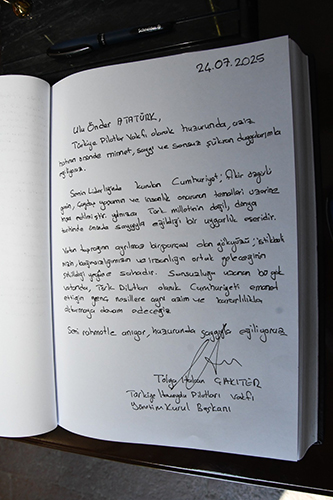 24.07.2025
Ulu Önder ATATÜRK,
Türkiye Pilotlar Vakfı olarak huzurunda, aziz
hatıran önünde minnet, saygı ve sonsuz şükran duygularımızla
eğiliyoruz.
Senin liderliğinde kurulan Cumhuriyet; fikir özgürlü
çağdaş yaşamın ve insanlık onurunun temelleri üzerine
inşa edilmiştir. yalnızca Türk milletinin değil, dünya
tarihinin önünde saygıyla eğildiği bir uygarlık eseridir.
Vatan toprağının ayrılmaz bir parçası olan gökyüzü; istikbalı
mızın, bağımsızlığımızın ve insanlığın ortak geleceğinin
yepyeni sahadır. Sonsuzluğa uzanan bu gök
vatanda, Türk Pilotları olarak Cumhuriyeti emanet
ettiğin genç nesillere aynı azim ve kararlılıkla
aktarmaya devam edeceğiz
Seni rahmetle anıyor, huzurunda saygıyla eğiliyoruz
Tolga Hakan ÇAKITER
Türkiye Havayolu Pilotları Vakfı
Yönetim Kurul Başkanı